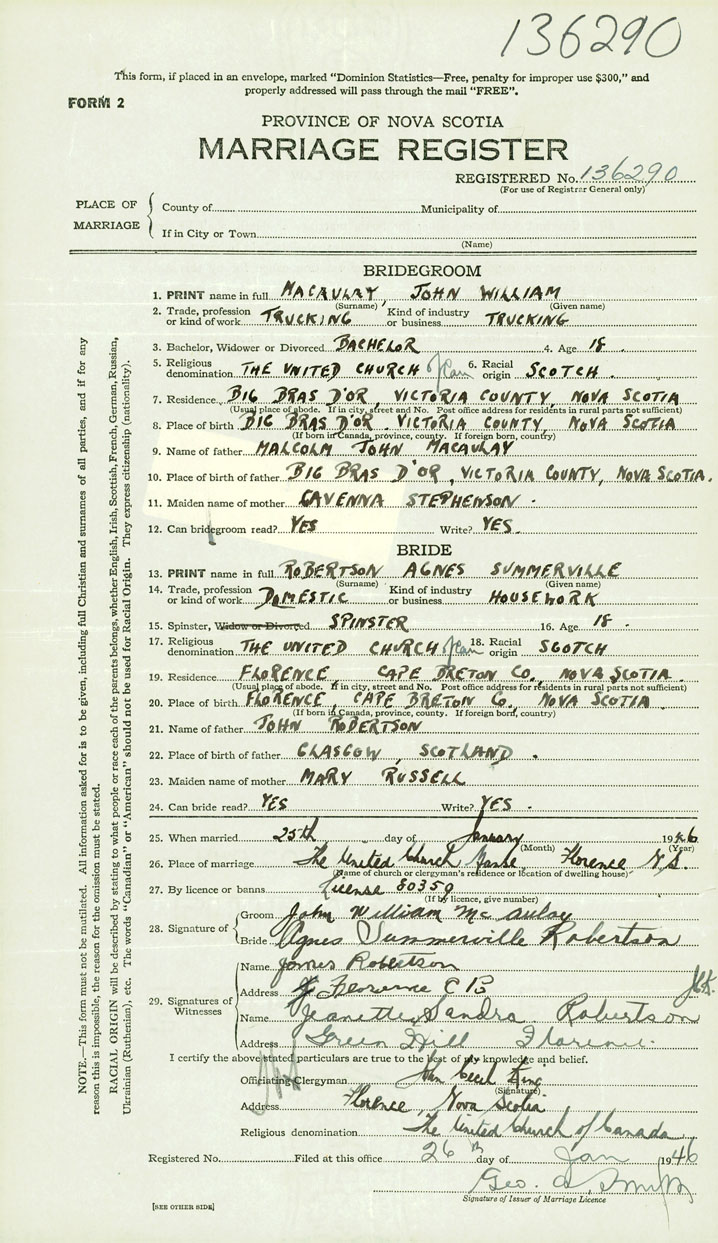 136290
This form, if placed in an envelope, marked "Dominion Statistics—Free, penalty for improper use $300," and
properly addressed will pass through the mail "FREE".
FORM 2
PROVINCE OF NOVA SCOTIA
MARRIAGE REGISTER
REGISTERED No. 136290
(For use of Registrar General only)
PLACE OF MARRIAGE
County of Municipality of
If in City or Town
(Name)
BRIDEGROOM
1. PRINT name in full MACAULAY, JOHN WILLIAM
(Surname) (Given name)
2. Trade, profession or kind of work TRUCKING Kind of industry or business TRUCKING
3. Bachelor, Widower or Divorced BACHELOR 4. Age 18.
5. Religious denomination THE UNITED CHURCH of Can 6. Racial origin SCOTCH.
7. Residence BIG BRAS D'OR, VICTORIA COUNTY, NOVA SCOTIA
(Usual place of abode. If in city, street and No. Post office address for residents in rural parts not sufficient)
8. Place of birth BIG BRAS D'OR. VICTORIA COUNTY, NOVA SCOTIA
(If born in Canada, province, county. If foreign born, country)
9. Name of father MALCOLM JOHN MACAULAY
10. Place of birth of father BIG BRAS D'OR, VICTORIA COUNTY, NOVA SCOTIA.
11. Maiden name of mother GAVENNA STEPHENSON.
12. Can bridegroom read? YES Write? YES.
BRIDE
13. PRINT name in full ROBERTSON AGNES SUMMERVILLE
(Surname) (Given name)
14. Trade, profession or kind of work DOMESTIC Kind of industry or business HOUSEWORK
15. Spinster, Widow or Divorced SPINSTER 16. Age 18.
17. Religious denomination THE UNITED CHURCH of Can 18. Racial origin SCOTCH
19. Residence FLORENCE, CAPE BRETON CO., NOVA SCOTIA.
(Usual place of abode. If in city, street and No. Post office address for residents in rural parts not sufficient)
20. Place of birth FLORENCE, CAPE BRETON CO. NOVA SCOTIA.
(If born in Canada, province, county. If foreign born, country)
21. Name of father JOHN ROBERTSON
22. Place of birth of father GLASGOW, SCOTLAND.
23. Maiden name of mother MARY RUSSELL
24. Can bride read? YES Write? YES.
25. When married 25th day of January 1946
(Month) (Year)
26. Place of marriage The United Church Manse, Florence N.S.
(Name of church or clergyman's residence or location of dwelling house)
27. By licence or banns License 80359
(If by licence, give number)
28. Signature of
Groom John William McAulay
Bride Agnes Summerville Robertson
29. Signatures of Witnesses
Name James Robertson
Address Florence C B
Name Jeanette Sandra Robertson
Address Green Hill Florence.
I certify the above stated particulars are true to the best of my knowledge and belief.
Officiating Clergyman Cecil King
(Signature)
Address Florence, Nova Scotia
Religious denomination The United Church of Canada
Registered No. Filed at this office 26th day of Jan 1946
Geo. Smith
Signature of Issuer of Marriage Licence
[SEE OTHER SIDE]
NOTE.—This form must not be mutilated. All information asked for is to be given, including full Christian and surnames of all parties, and if for any
reason this is impossible, the reason for the omission must be stated.
RACIAL ORIGIN will be described by stating to what people or race each of the parents belongs, whether English, Irish, Scottish, French, German, Russian,
Ukrainian (Ruthenian), etc. The words "Canadian" or "American" should not be used for Racial Origin. They express citizenship (nationality).